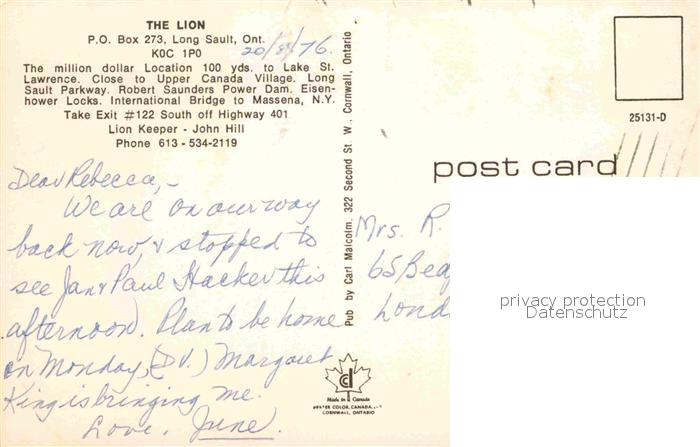 THE LION
P.O. Box 273, Long Sault, Ont.
K0C 1P0
20/8/76.
The million dollar Location 100 yds. to Lake St.
Lawrence. Close to Upper Canada Village. Long
Sault Parkway. Robert Saunders Power Dam. Eisen-
hower Locks. International Bridge to Massena, N.Y.
Take Exit #122 South off Highway 401
Lion Keeper - John Hill
Phone 613 - 534-2119
Dear Rebecca,-
We are on our way
back now, & stopped to
see Jan & Paul Hacker this
afternoon. Plan to be home
on Monday, (DV.) Margaret
King is bringing me.
Love, June.
Pub by Carl Malcolm, 322 Second St W., Cornwall, Ontario
Made in Canada
CORNWALL, ONTARIO
25131-D
post card
Mrs. R.
65
Lond
privacy protection
Datenschutz